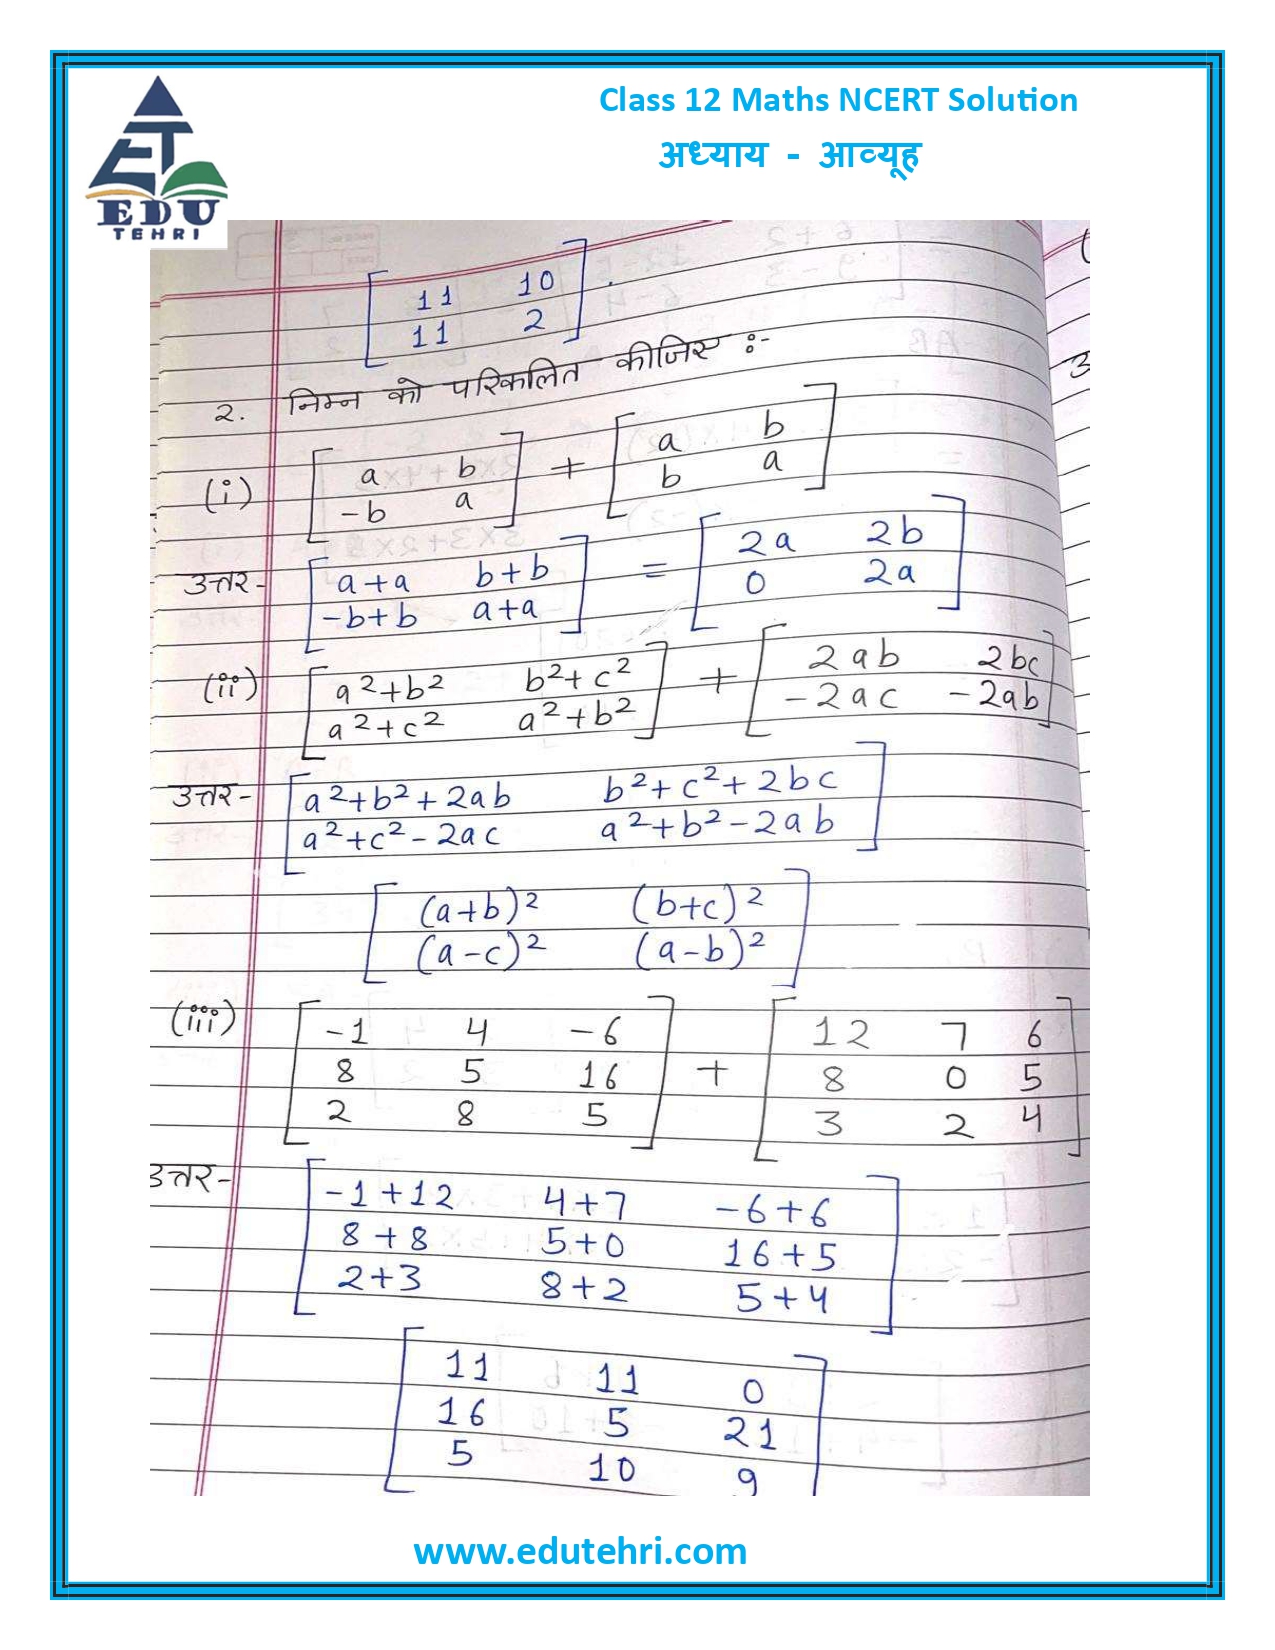 Class 12 Maths NCERT Solution
अध्याय - आव्यूह
EDU
TEHRI
[ 11 10
11 2 ].
2. निम्न को परिकलित कीजिए :-
(i) [ a b
-b a ] + [ a b
b a ]
उत्तर- [ a+a b+b
-b+b a+a ] = [ 2a 2b
0 2a ]
(ii) [ a²+b² b²+c²
a²+c² a²+b² ] + [ 2ab 2bc
-2ac -2ab ]
उत्तर- [ a²+b²+2ab b²+c²+2bc
a²+c²-2ac a²+b²-2ab ]
[ (a+b)² (b+c)²
(a-c)² (a-b)² ]
(iii) [ -1 4 -6
8 5 16
2 8 5 ] + [ 12 7 6
8 0 5
3 2 4 ]
उत्तर- [ -1+12 4+7 -6+6
8+8 5+0 16+5
2+3 8+2 5+4 ]
[ 11 11 0
16 5 21
5 10 9 ]
www.edutehri.com